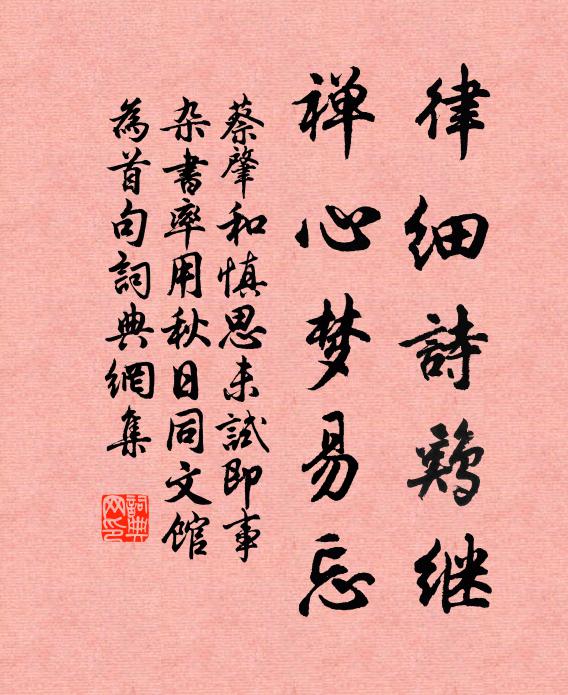 律细詩鷄继
禅心梦易忘
蔡肇和慎思未試即事
杂書率用秋日同文館
為首句詞典網集
詞典网印